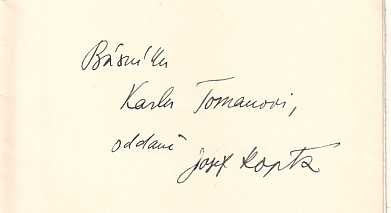 Básníku
Karlu Tomanovi,
oddaně
Josef Kopta